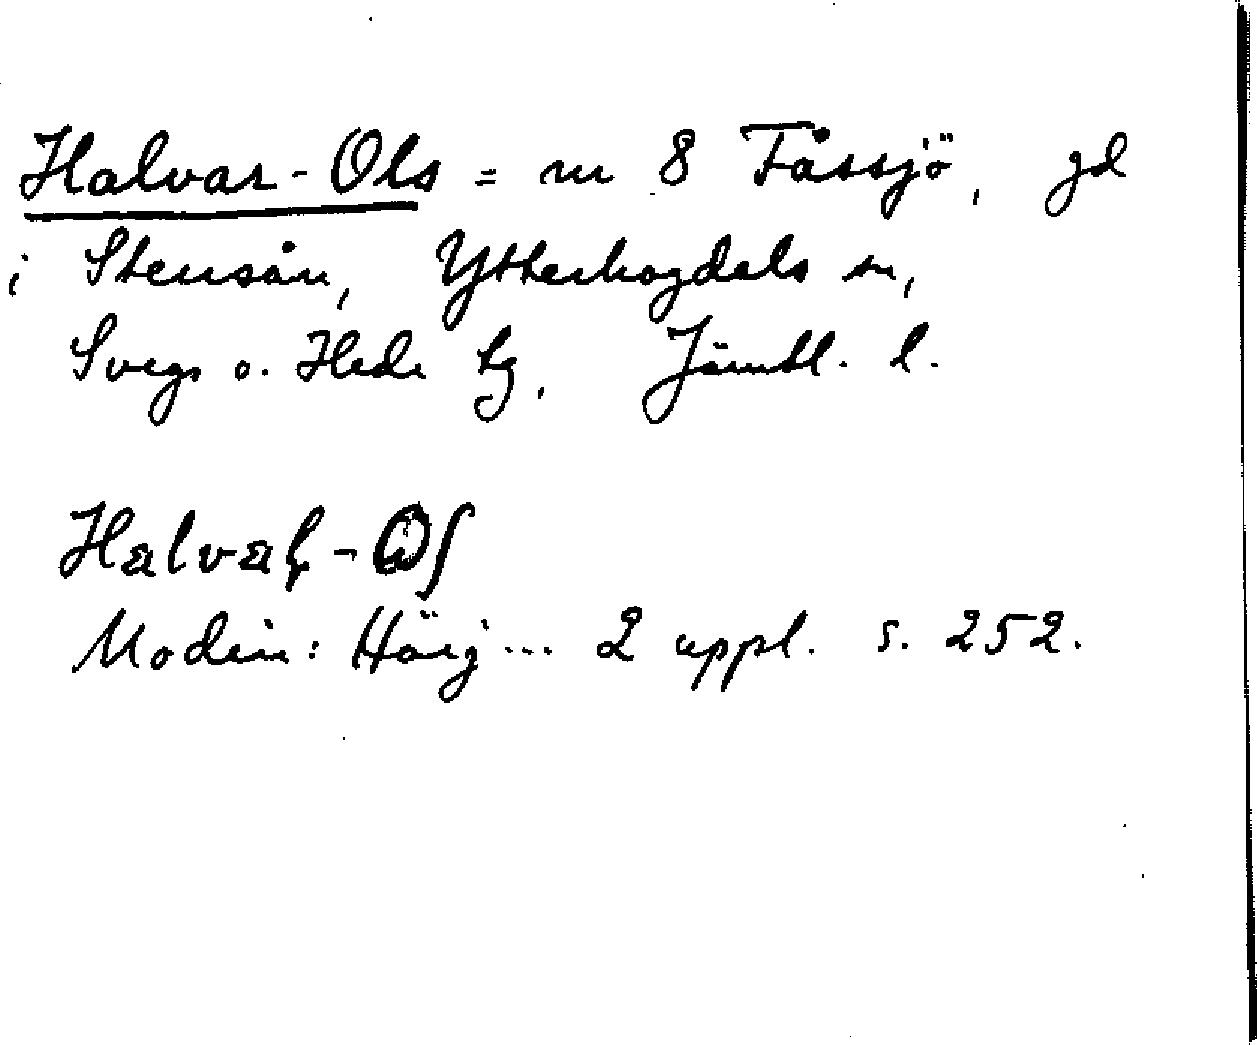 Halvar-Ols = nr 8 Fåssjö, gd
i Stensån, Ytterhogdals sn,
Svegs o. Hede tg, Jämtl. l.
Halvaɽ-Oʃ
Modin: Härj... 2 uppl. s. 252.